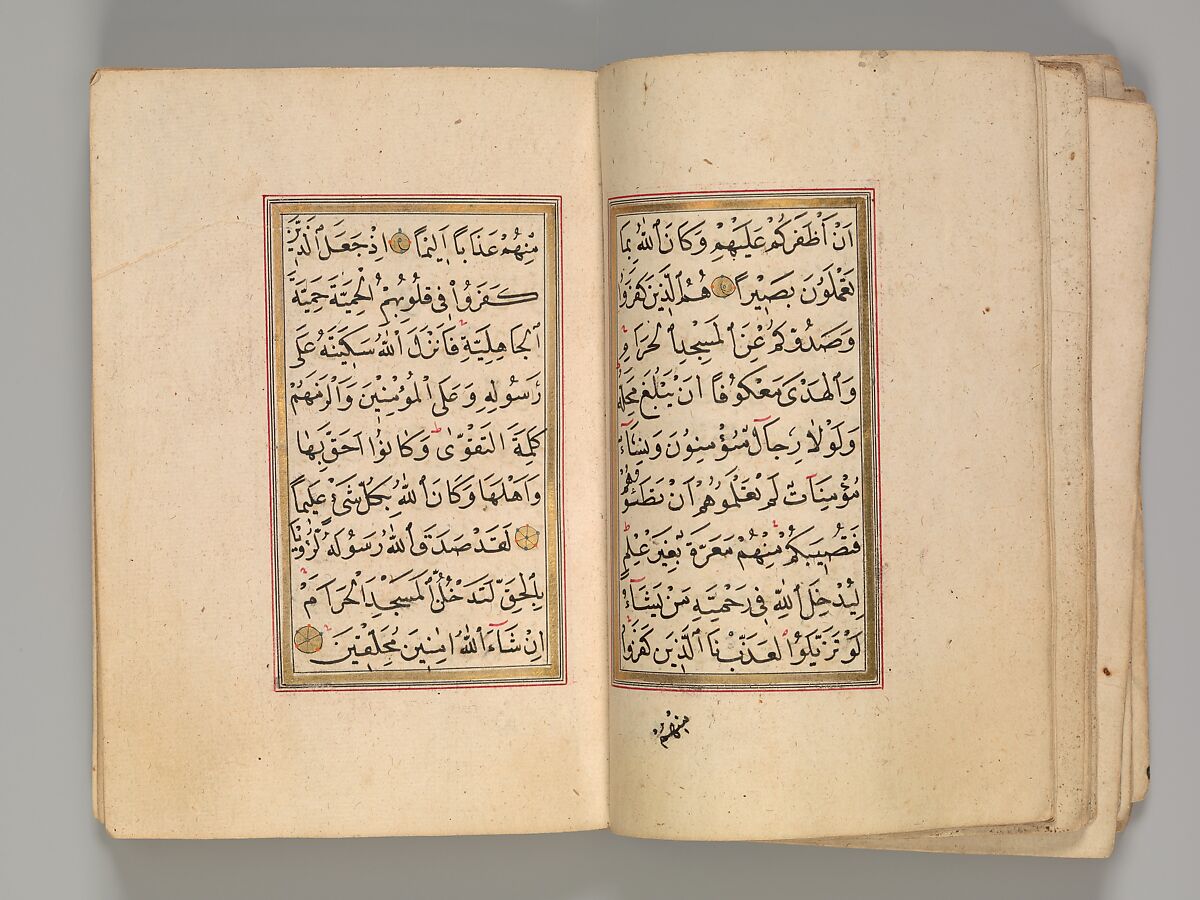 اَنْ اَظْفَرَكُمْ عَلَيْهِمْ وَكَانَ اللّٰهُ بِمَا
تَعْمَلُونَ بَصِيرًا هُمُ الَّذِينَ كَفَرُوا
وَصَدُّوكُمْ عَنِ الْمَسْجِدِ الْحَرَامِ
وَالْهَدْىَ مَعْكُوفًا اَنْ يَبْلُغَ مَحِلَّهُ
وَلَوْلَا رِجَالٌ مُؤْمِنُونَ وَنِسَٓاءٌ
مُؤْمِنَاتٌ لَمْ تَعْلَمُوهُمْ اَنْ تَطَؤُهُمْ
فَتُصِيبَكُمْ مِنْهُمْ مَعَرَّةٌ بِغَيْرِ عِلْمٍ
لِيُدْخِلَ اللّٰهُ فِى رَحْمَتِهِ مَنْ يَشَٓاءُ
لَوْ تَزَيَّلُوا لَعَذَّبْنَا الَّذِينَ كَفَرُوا
مِنْهُمْ
مِنْهُمْ عَذَابًا اَلِيمًا اِذْ جَعَلَ الَّذِينَ
كَفَرُوا فِى قُلُوبِهِمُ الْحَمِيَّةَ حَمِيَّةَ
الْجَاهِلِيَّةِ فَاَنْزَلَ اللّٰهُ سَكِينَتَهُ عَلٰى
رَسُولِهِ وَعَلَى الْمُؤْمِنِينَ وَاَلْزَمَهُمْ
كَلِمَةَ التَّقْوٰى وَكَانُوا اَحَقَّ بِهَا
وَاَهْلَهَا وَكَانَ اللّٰهُ بِكُلِّ شَىْءٍ عَلِيمًا
لَقَدْ صَدَقَ اللّٰهُ رَسُولَهُ الرُّءْيَا
بِالْحَقِّ لَتَدْخُلُنَّ الْمَسْجِدَ الْحَرَامَ
اِنْ شَٓاءَ اللّٰهُ اٰمِنِينَ مُحَلِّقِينَ